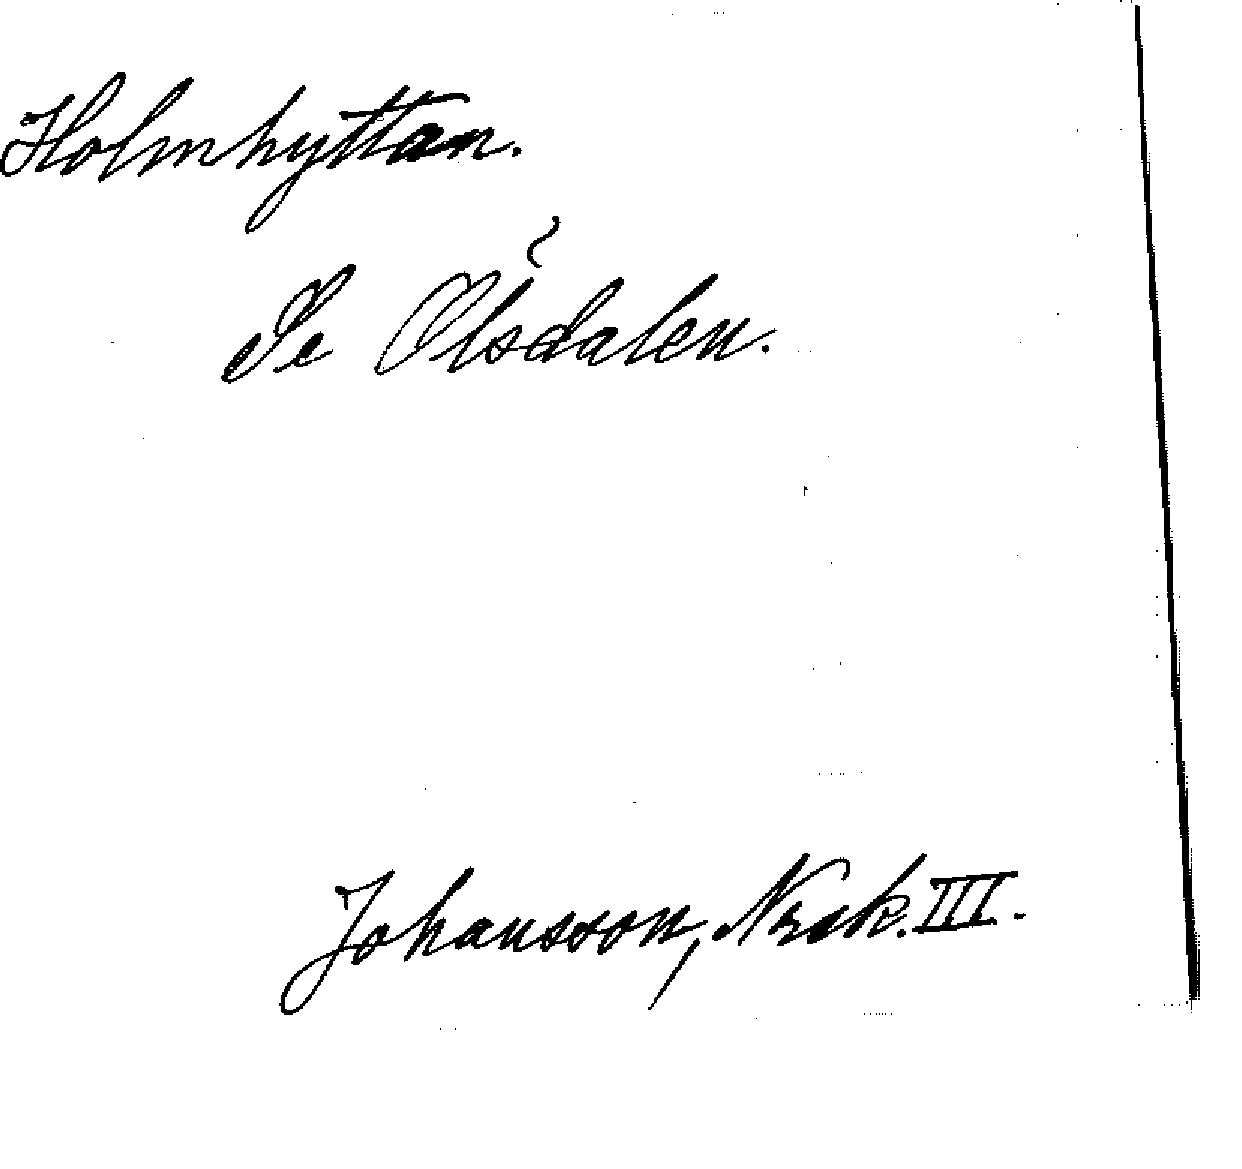 Holmhyttan.
Se Olsdalen.
Johansson, Norak. III.